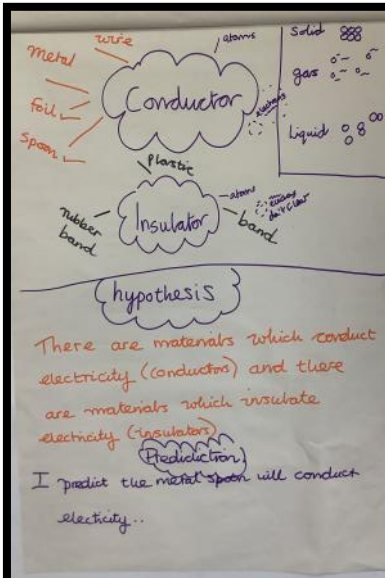 wire
atoms
Metal
Conductor
foil
electrons
Spoon
Solid
gas
Liquid
Plastic
atoms
rubber
band
Insulator
band
don't flow
hypothesis
There are materials which conduct
electricity (conductors) and there
are materials which insulate
electricity (insulators)
Predidiction
I predict the metal spoon will conduct
electicity..